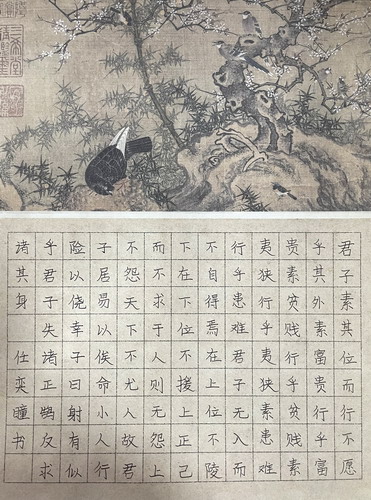 君子素其位而行不愿
乎其外素富贵行乎富
贵素贫贱行乎贫贱素
夷狄行乎夷狄素患难
行乎患难君子无入而
不自得焉在上位不陵
下在下位不援上正己
而不求于人则无怨上
不怨天下不尤人故君
子居易以俟命小人行
险以侥幸子曰射有似
乎君子失诸正鹄反求
诸其身 仕奕瞳书